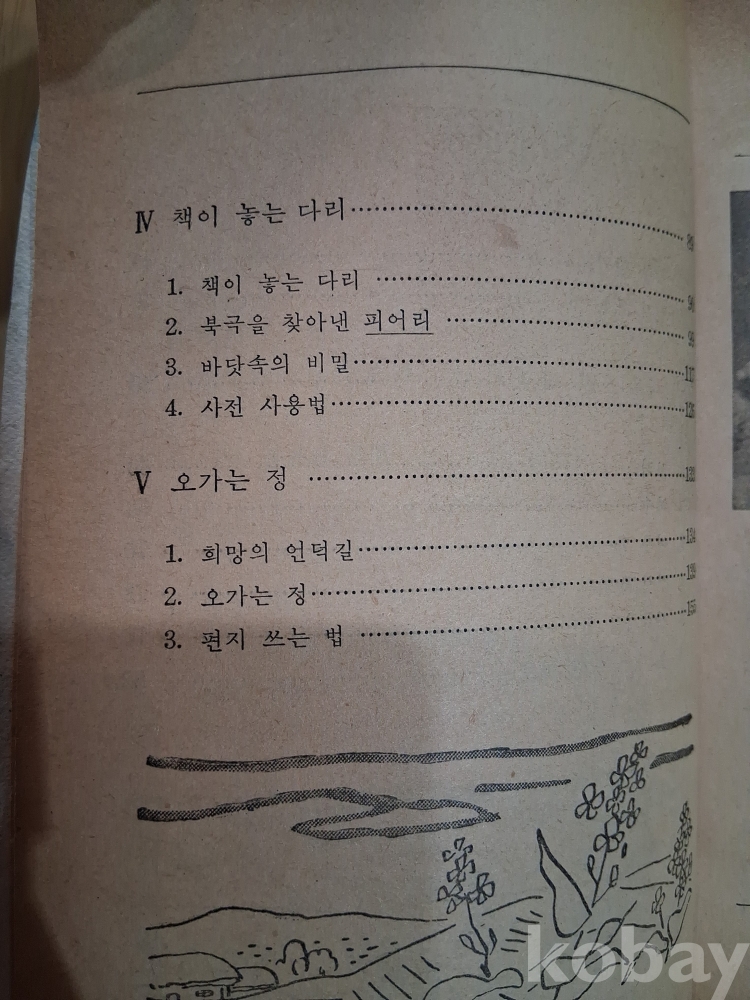 Ⅳ 책이 놓는 다리
1. 책이 놓는 다리
2. 북극을 찾아낸 피어리
3. 바닷속의 비밀
4. 사전 사용법
Ⅴ 오가는 정
1. 희망의 언덕길
2. 오가는 정
3. 편지 쓰는 법
kobay